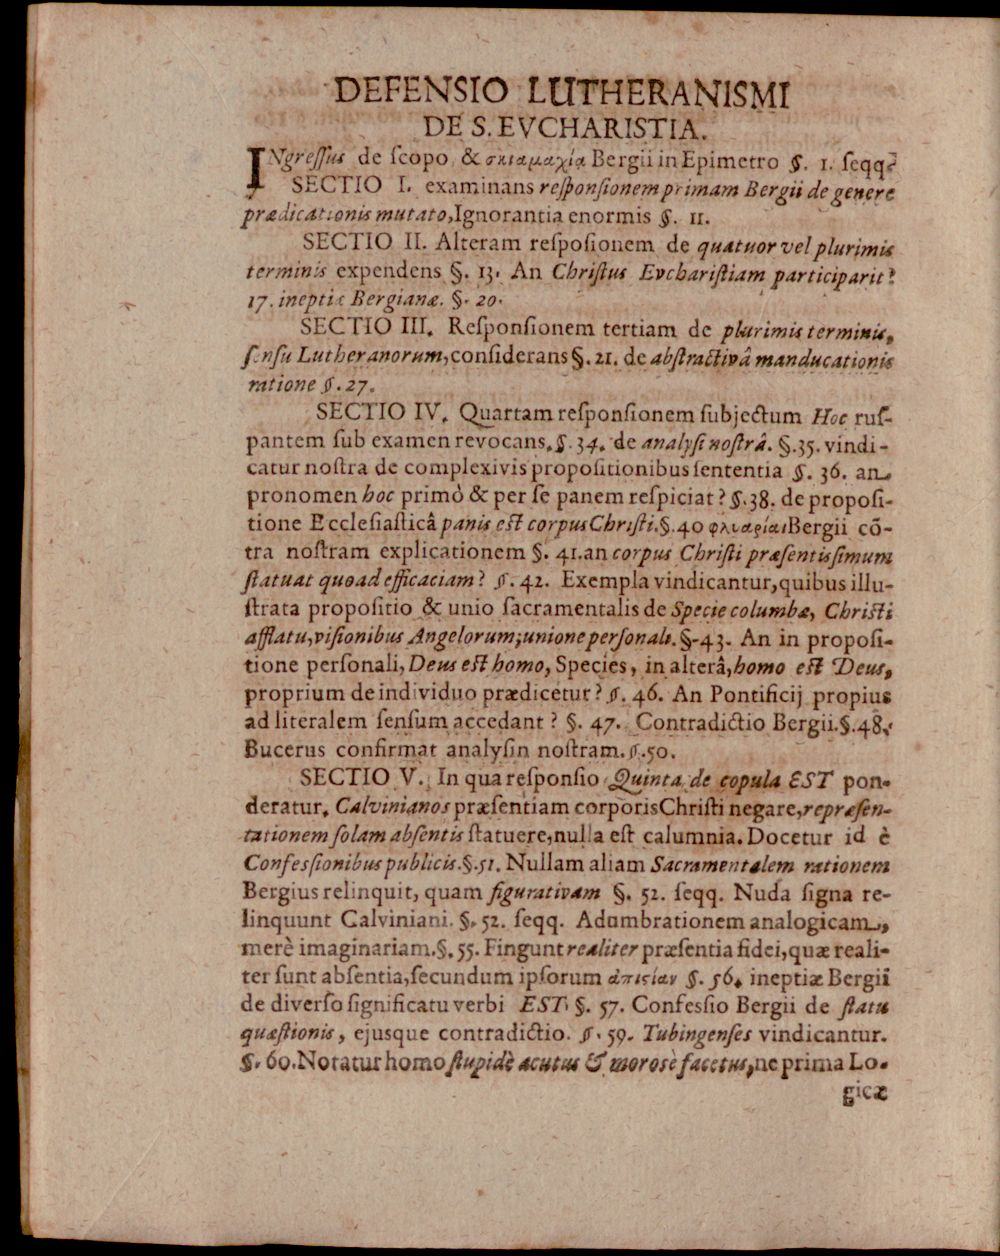 DEFENSIO LUTHERANISMI
DE S. EVCHARISTIA.
INgreſſus de ſcopo & σκιαμαχία Bergii in Epimetro §. 1. ſeqq.
SECTIO I. examinans reſponſionem primam Bergii de genere
prædicationis mutato, Ignorantia enormis §. 11.
SECTIO II. Alteram reſpoſionem de quatuor vel plurimis
terminis expendens §. 13. An Chriſtus Evchariſtiam participarit?
17. ineptiæ Bergianæ. §. 20.
SECTIO III. Reſponſionem tertiam de plurimis terminis,
ſenſu Lutheranorum, conſiderans §. 21. de abſtractivâ manducationis
ratione §. 27.
SECTIO IV. Quartam reſponſionem ſubjectum Hoc ruſ-
pantem ſub examen revocans. §. 34. de analyſi noſtrâ. §. 35. vindi-
catur noſtra de complexivis propoſitionibus ſententia §. 36. an
pronomen hoc primò & per ſe panem reſpiciat? §. 38. de propoſi-
tione Eccleſiaſticâ panis eſt corpus Chriſti. §. 40 φλυαρίαι Bergii cō-
tra noſtram explicationem §. 41. an corpus Chriſti præſentisſimum
ſtatuat quoad efficaciam? §. 42. Exempla vindicantur, quibus illu-
ſtrata propoſitio & unio ſacramentalis de Specie columbæ, Chriſti
afflatu, viſionibus Angelorum; unione perſonali. §. 43. An in propoſi-
tione perſonali, Deus eſt homo, Species, in alterâ, homo eſt Deus,
proprium de individuo prædicetur? §. 46. An Pontificij propius
ad literalem ſenſum accedant? §. 47. Contradictio Bergii. §. 48.
Bucerus confirmat analyſin noſtram. §. 50.
SECTIO V. In qua reſponſio Quinta de copula EST pon-
deratur. Calvinianos præſentiam corporis Chriſti negare, repræſen-
tationem ſolam abſentis ſtatuere, nulla eſt calumnia. Docetur id è
Confesſionibus publicis. §. 51. Nullam aliam Sacramentalem rationem
Bergius relinquit, quam figurativam §. 52. ſeqq. Nuda ſigna re-
linquunt Calviniani. §. 52. ſeqq. Adumbrationem analogicam,
merè imaginariam. §. 55. Fingunt realiter præſentia fidei, quæ reali-
ter ſunt abſentia, ſecundum ipſorum ἀπιςίαν §. 56. ineptiæ Bergii
de diverſo ſignificatu verbi EST. §. 57. Confeſſio Bergii de ſtatu
quæſtionis, ejusque contradictio. §. 59. Tubingenſes vindicantur.
§. 60. Notatur homo ſtupidè acutus & moroſè facetus, ne prima Lo-
gicæ